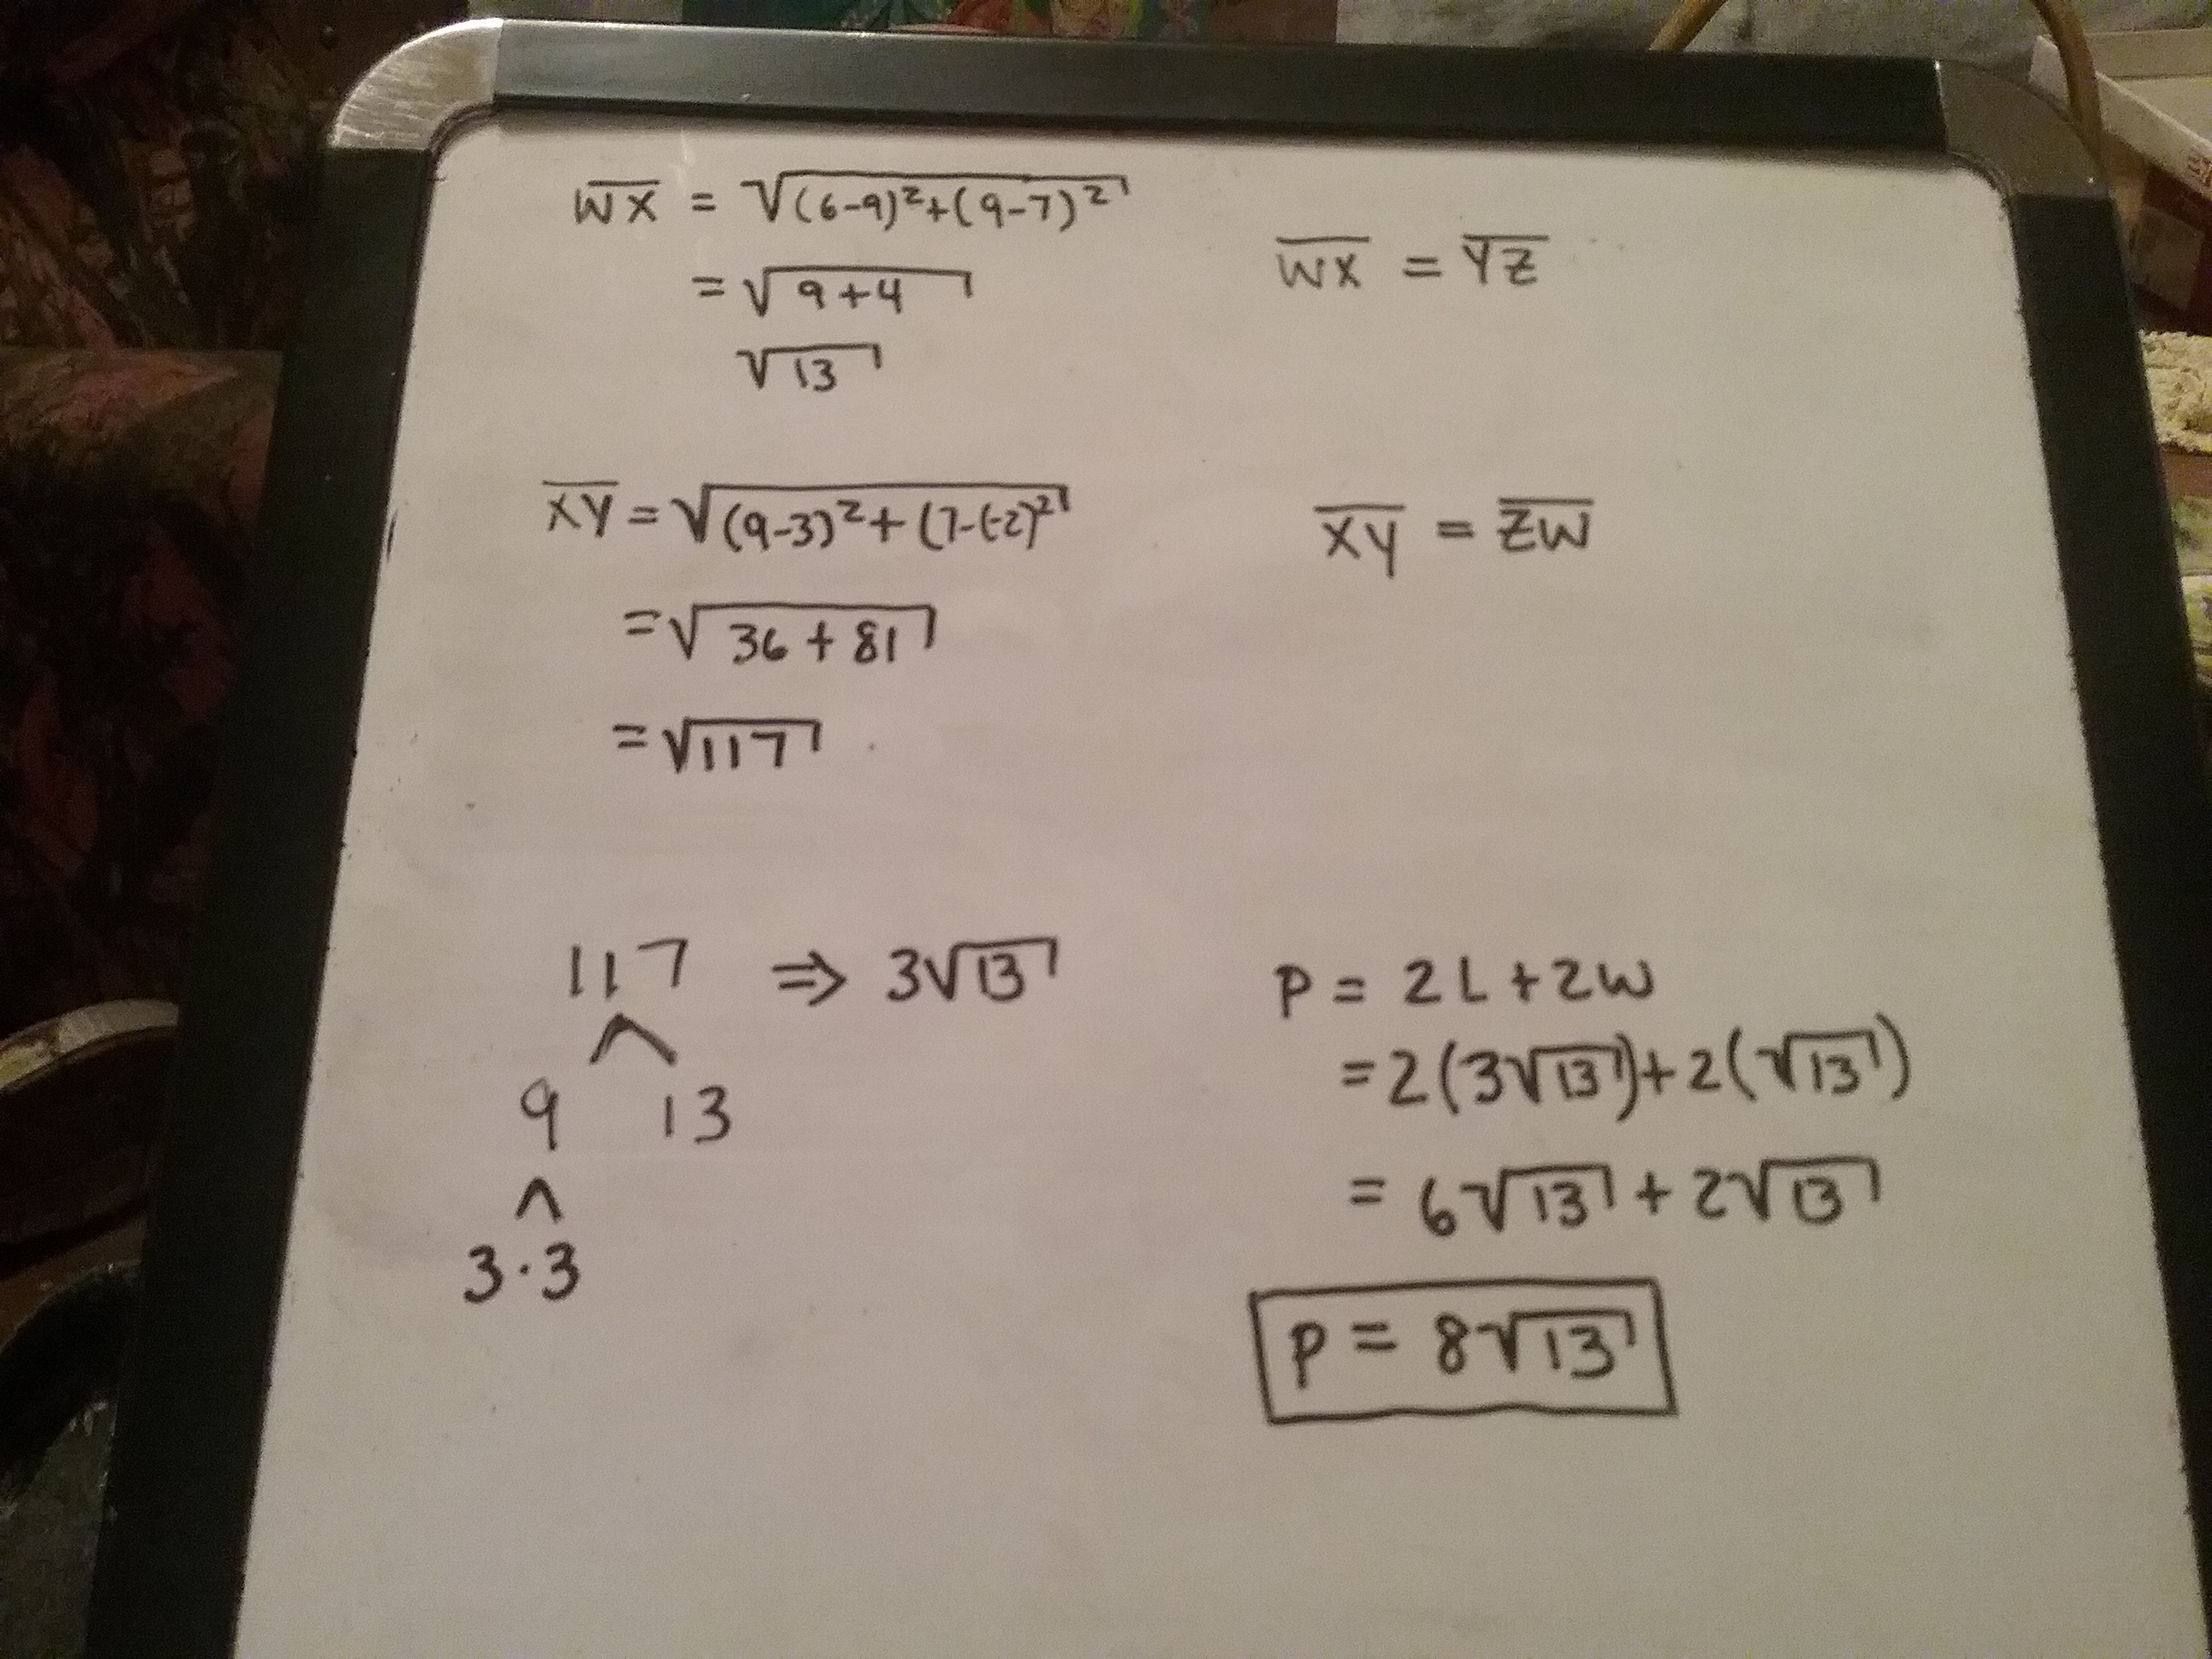 W̅X̅ = √(6-9)²+(9-7)²
= √9+4
√13
W̅X̅ = Y̅Z̅
X̅Y̅ = √(9-3)²+(7-(-2)²
= √36+81
= √117
X̅Y̅ = Z̅W̅
117 ⇒ 3√13
9 13
3·3
P = 2L+2W
= 2(3√13)+2(√13)
= 6√13+2√13
P = 8√13